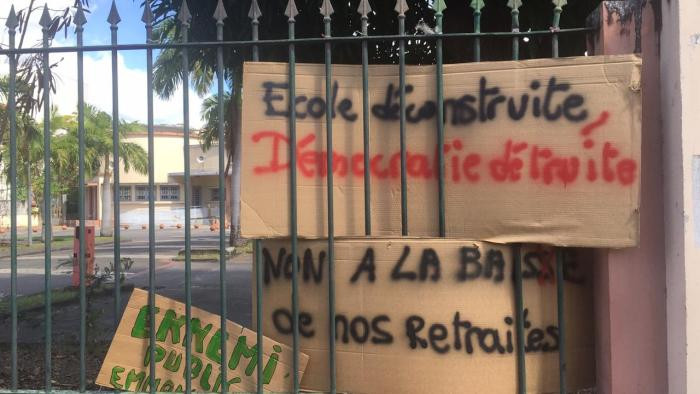 Ecole déconstruite,
Démocratie détruite
NON A LA BAISSE
de nos Retraites
ENNEMI
PUBLIC
EMMA